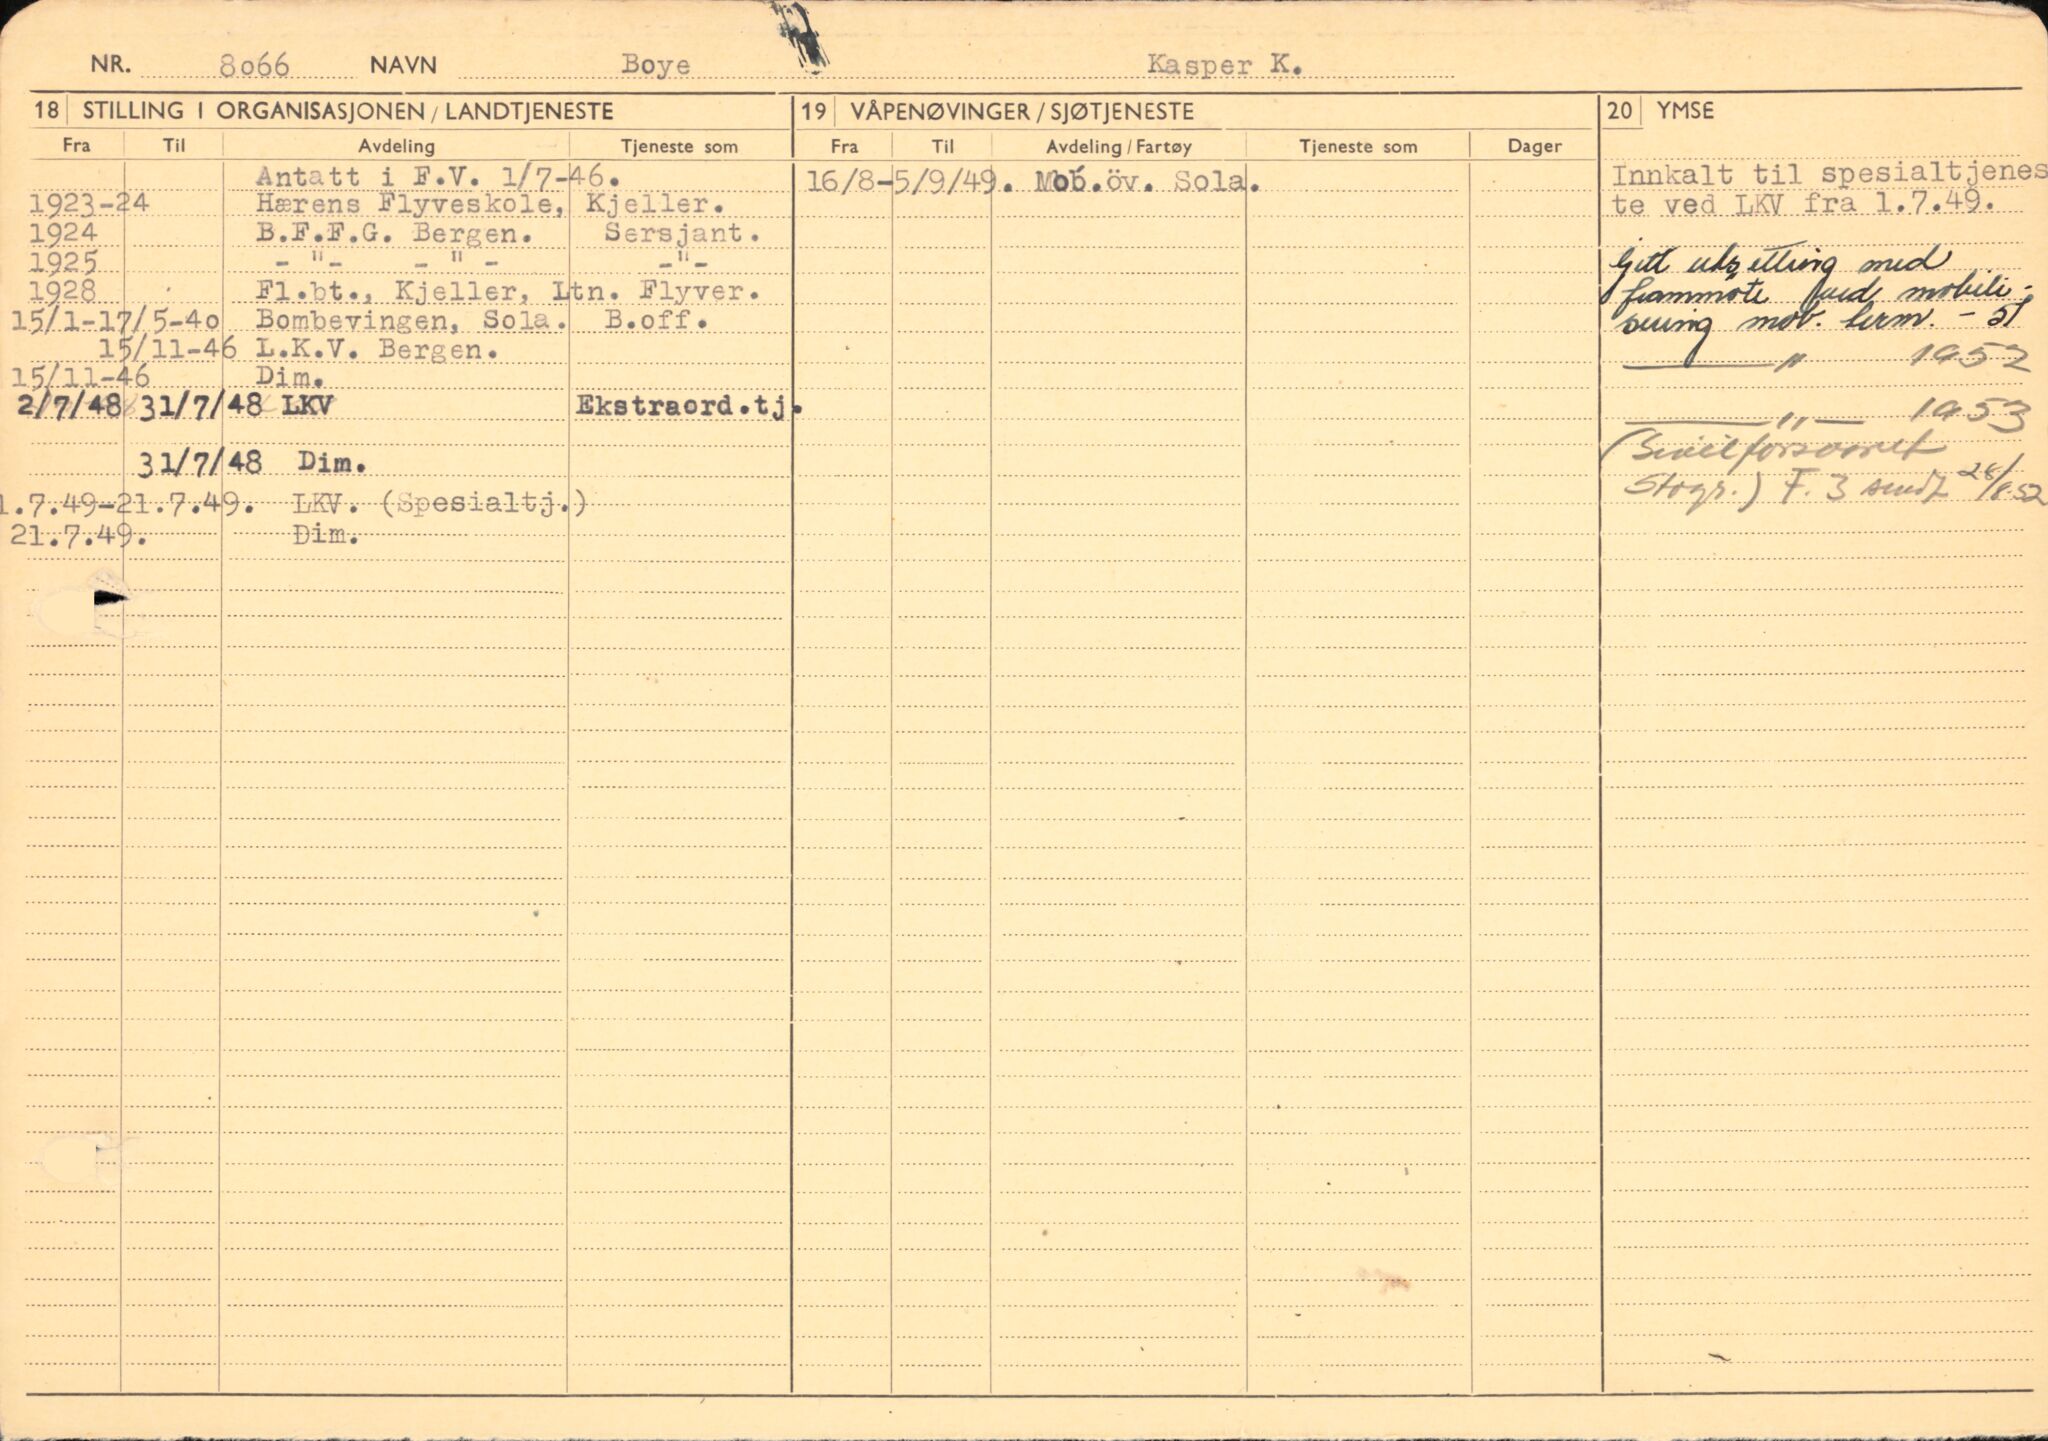 NR. 8o66 NAVN Boye Kasper K.
18 STILLING I ORGANISASJONEN / LANDTJENESTE
Fra Til Avdeling Tjeneste som
Antatt i F.V. 1/7-46.
1923-24 Hærens Flyveskole, Kjeller.
1924 B.F.F.G. Bergen. Sersjant.
1925 -"- -"- -"-
1928 Fl.bt., Kjeller, Ltn. Flyver.
15/1-17/5-4o Bombevingen, Sola. B.off.
15/11-46 L.K.V. Bergen.
15/11-46 Dim.
2/7/48 31/7/48 LKV Ekstraord.tj.
31/7/48 Dim.
1.7.49-21.7.49. LKV. (Spesialtj.)
21.7.49. Dim.
19 VÅPENØVINGER / SJØTJENESTE
Fra Til Avdeling / Fartøy Tjeneste som Dager
16/8-5/9/49. Mob.öv. Sola.
20 YMSE
Innkalt til spesialtjenes
te ved LKV fra 1.7.49.
Gitt utsetting med
frammöte ved mobili-
sering mob. term. - 51
" 1952
" 1953
(Sivilforsvaret
) F. 3 sendt 28/8.52